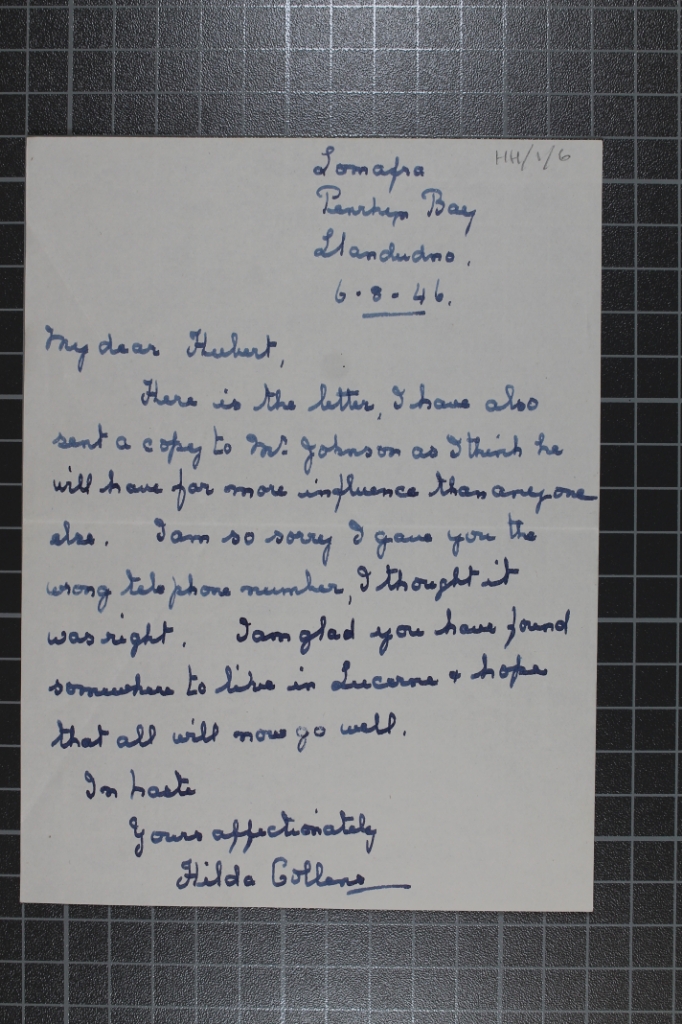 HH/1/6
Lomafra
Penrhyn Bay
Llandudno.
6.8.46.
My dear Hubert,
Here is the letter, I have also
sent a copy to Mr. Johnson as I think he
will have far more influence than anyone
else. I am so sorry I gave you the
wrong telephone number, I thought it
was right. I am glad you have found
somewhere to live in Lucerne & hope
that all will now go well.
In haste
Yours affectionately
Hilda Collens